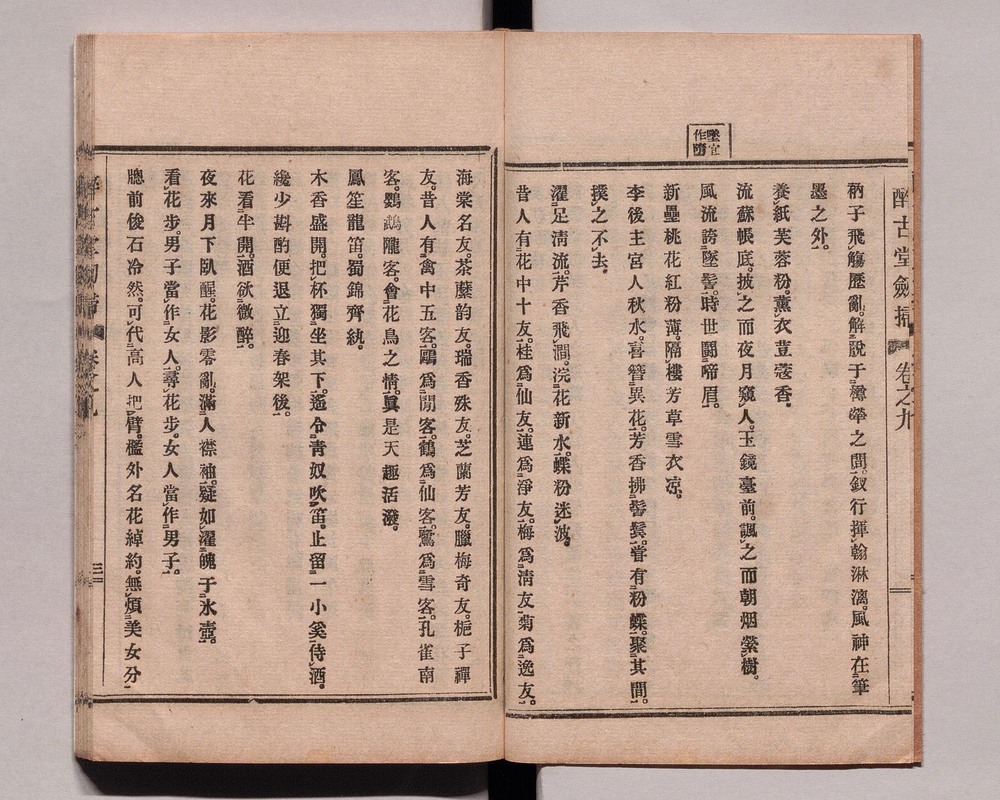 醉古堂劍掃 卷之九
墜宜
作墮
衲子飛觴歷亂。解脫于樽斝之間。釵行揮翰淋漓。風神在筆
墨之外。
養紙芙蓉粉。薰衣荳蔻香。
流蘇帳底。披之而夜月窺人。玉鏡臺前。諷之而朝烟縈樹。
風流誇墜髻。時世鬪啼眉。
新壘桃花紅粉薄。隔樓芳草雪衣凉。
李後主宮人秋水。喜簪異花。芳香拂髻鬢。嘗有粉蝶。聚其間。
撲之不去。
濯足清流。芹香飛澗。浣花新水。蝶粉迷波。
昔人有花中十友。桂爲仙友。蓮爲淨友。梅爲清友。菊爲逸友。
海棠名友。荼蘼韵友。瑞香殊友。芝蘭芳友。臘梅奇友。梔子禪
友。昔人有禽中五客。鷗爲閒客。鶴爲仙客。鷺爲雪客。孔雀南
客。鸚鵡隴客。會花鳥之情。眞是天趣活潑。
鳳笙龍笛。蜀錦齊紈。
木香盛開。把杯獨坐其下。遙令靑奴吹笛。止留一小奚侍酒。
纔少斟酌便退立迎春架後。
花看半開。酒飮微醉。
夜來月下臥醒。花影零亂。滿人襟袖。疑如濯魄于氷壺。
看花步。男子當作女人。尋花步。女人當作男子。
牕前俊石冷然。可代高人把臂。檻外名花綽約。無煩美女分
三